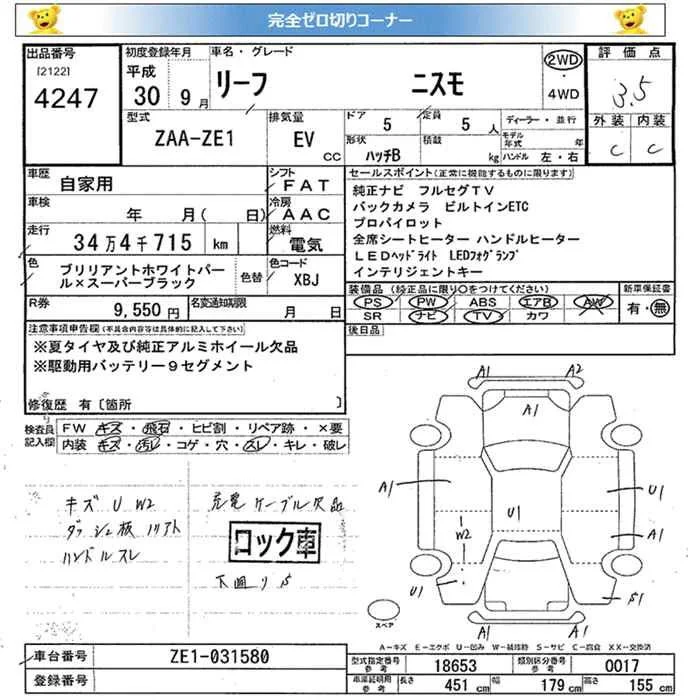 完全ゼロ切りコーナー
出品番号
[2122]
4247
初度登録年月
平成
30 9月
車名・グレード
リーフ ニスモ
2WD
・
4WD
評価点
3.5
外装 内装
C C
型式
ZAA-ZE1
排気量
EV
CC
ドア
5
定員
5 人
形状
ハッチB
積載
kg
ディーラー・並行
モデル年式 年
ハンドル 左・右
車歴
自家用
シフト
FAT
車検
年 月( 日)
冷房
AAC
走行
34万4千715 km
燃料
電気
色
ブリリアントホワイトパール×スーパーブラック
色替
色コード
XBJ
R券
9,550円
名変通知期限
月 日
セールスポイント(正常に機能するものに限ります)
純正ナビ フルセグTV
バックカメラ ビルトインETC
プロパイロット
全席シートヒーター ハンドルヒーター
LEDヘッドライト LEDフォグランプ
インテリジェントキー
装備品(純正品に限り○をつけてください)
PS PW ABS エアB AW
SR ナビ TV カワ
新車保証書
有・無
後日品
注意事項申告欄(不具合内容等は具体的に記入して下さい)
※夏タイヤ及び純正アルミホイール欠品
※駆動用バッテリー9セグメント
修復歴 有〔箇所 〕
検査員記入欄
FW キズ・飛石・ヒビ割・リペア跡・×要
内装 キズ・汚レ・コゲ・穴・スレ・キレ・破レ
キズ U W2
ダッシュ板
ハンドルスレ
充電ケーブル欠品
ロック車
下回りS
A1 A2
A1
A1 U1 U1
W2 A1
U1 S1
A1 A1
スペア
A－キズ E－エクボ U－凹み W－補修跡 S－サビ C－腐食 XX－交換済
車台番号 ZE1-031580
登録番号
型式指定番号参考 18653 類別区分番号参考 0017
車庫証明用参考 長さ 451 cm 幅 179 cm 高さ 155 cm